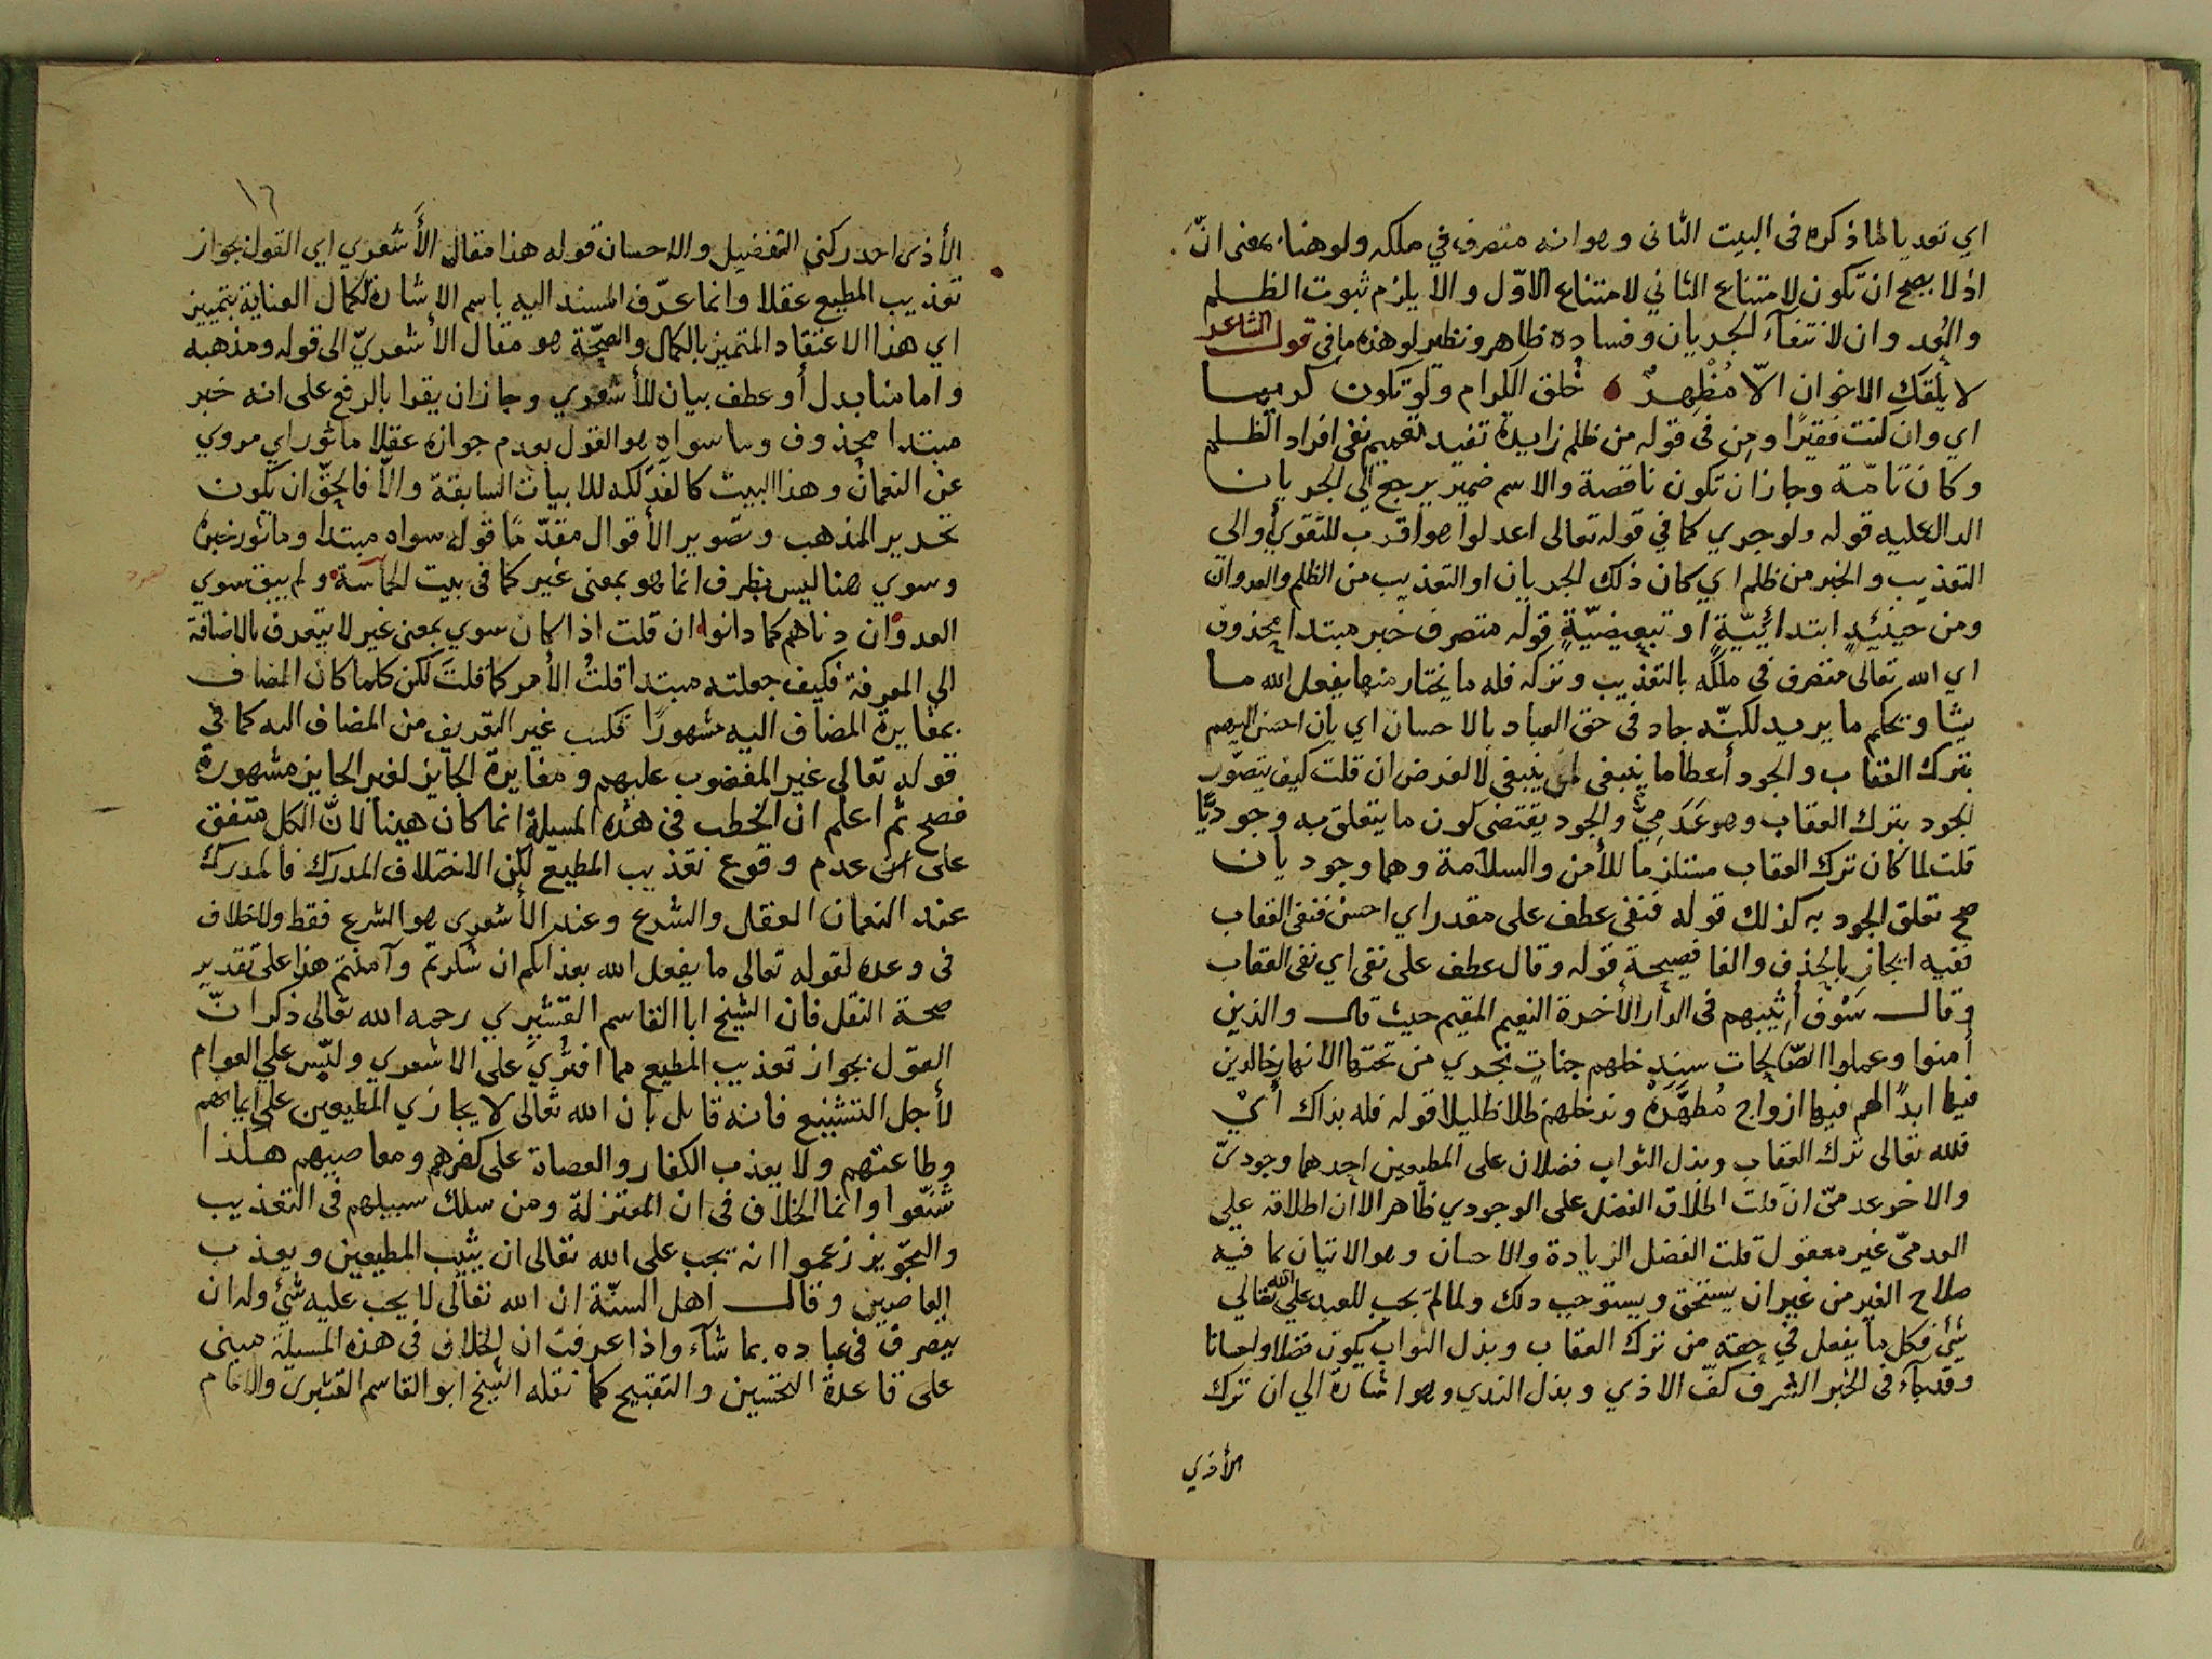 اي تعديا لما ذكره فى البيت الثانى وهو انه متصرف في ملكه ولو هنا بمعنى انّ
اذ لا يصح ان تكون لامتناع الثاني لامتناع الاوّل والا يلزم ثبوت الظلم
والعُدوان لانتفآء الجريان وفساده ظاهر ونظير لو هذه ما فى قول الشاعر
لا يلقَك الاخوان الّا مُظْهِرً خُلق الكرام ولو تكون كريما
اي وان كنت فقيرًا ومِن فى قوله من ظلم زايدة تفيد تعميم نفى افراد الظلم
وكان تامّة وجاز ان تكون ناقصة والاسم ضمير يرجع الي الجريان
الدال عليه قوله ولو جري كما في قوله تعالى اعدلوا هو اقرب للتقوي أو الى
التعذيب والخبر من ظلم اي كان ذلك الجريان او التعذيب من الظلم والعدوان
ومن حينئذٍ ابتدائيّةٍ او تبعيضيّةٍ قوله متصرف خبر مبتدا محذوف
اي الله تعالى متصرف في ملكه بالتعذيب وتركه فله ما يختار منهما يفعل الله ما
يشا ويحكم ما يريد لكنّه جاد فى حق العباد بالاحسان اي بان احسن اليهم
بترك العقاب والجود أعطا ما ينبغى لمن ينبغى لا لغرض ان قلت كيف يتصوّر
الجود بترك العقاب وهو عَدَمِيٌّ والجود يقتضى كون ما يتعلق به وجوديًّا
قلت لما كان ترك العقاب مستلزما للأمن والسلامة وهما وجوديان
صح تعلق الجود به كذلك قوله فنفى عطف على مقدر اي احسن فنفى العقاب
ففيه ايجاز بالحذف والفا فصيحة قوله وقال عطف على نفى اي نفى العقاب
وقال سَوْف أُثيبهم فى الدار الأخرة النعيم المقيم حيث قال والذين
أمنوا وعملوا الصّالحات سيندخلهم جناتٍ تجري من تحتها الانهار خالدين
فيها ابدًا لهم فيها ازواج مُطهَّرة وندخلهم ظلا ظليلا قوله فله بذاك أيْ
فلله تعالى ترك العقاب وبذل الثواب فضلان على المطيعين احدهما وجوديّ
والاخر عدمىّ ان قلت اطلاق الفضل على الوجودي ظاهر الا ان اطلاقه علي
العدمىّ غير معقول قلت الفضل الزيادة والاحسان وهو الاتيان بما فيه
صلاح الغير من غير ان يستحق ويستوجب ذلك ولما لم يجب للعبد علي الله تعالي
شئ فكل ما يفعل في حقه من ترك العقاب وبذل الثواب يكون فضلا واحسانا
وقد جآء فى الخبر الشرف كفّ الاذي وبذل الندي وهو اشارة الي ان ترك
الأذي
١٦
الأذى احد ركني التفضيل والاحسان قوله هذا مقال الأَشعري اي القول بجواز
تعذيب المطيع عقلا وانما عرّف المسند اليه باسم الاشارة لكمال العناية بتمييز
اي هذا الاعتقاد المتميز بالكمال والصحّة هو مقال الأشعريّ الى قوله ومذهبه
وامامنا بدل أو عطف بيان للأشعري وجاز ان يقرا بالرفع على انه خبر
مبتدا محذوف وما سواه هو القول بعدم جوازه عقلا ماثور اي مروي
عن النعمان وهذا البيت كالفذلكه للابيات السابقة والّا فالحقّ ان يكون
تحرير المذهب وتصوير الأقوال مقدّمًا قوله سواه مبتدا وماثور خبره
وسوي هنا ليس بظرف انما هو بمعنى غير كما فى بيت الحماسة ولم يبق سوي
العدوان دناهم كما دانوا ان قلت اذا كان سوي بمعنى غير لا يتعرف بالاضافة
الي المعرفة فكيف جعلته مبتدا قلتُ الأمر كما قلتَ لكن كلما كان المضاف
بمغايرة المضاف اليه مشهورًا تكسب غير التعريف من المضاف اليه كما في
قوله تعالى غير المغضوب عليهم ومغايرة الجايز لغير الجايز مشهورة
فصح ثم اعلم ان الخطب فى هذه المسيلة انما كان هينا لانّ الكل متفق
على عدم وقوع تعذيب المطيع لكن الاختلاف المدرك فالمدرك
عند النعمان العقل والشرع وعند الأشعري هو الشرع فقط ولاخلاف
فى وعده لقوله تعالى ما يفعل الله بعذابكم ان شكرتم وآمنتم هذا على تقدير
صحة النقل فان الشيخ ابا القاسم القشيري رحمه الله تعالى ذكر انّ
القول بجواز تعذيب المطيع مما افتُرِيَ على الاشعري ولبّس علي العوام
لأجل التشنيع فانه قايل بان الله تعالى لا يجازي المطيعين على ايمانهم
وطاعتهم ولا يعذب الكفار والعصاة على كفرهم ومعاصيهم هكذا
شنّعوا وانما الخلاف فى ان المعتزلة ومن سلك سبيلهم فى التعذيب
والتجويز زعموا انه يجب على الله تعالى ان يثيب المطيعين ويعذب
العاصين وقال اهل السنّة ان الله تعالى لا يجب عليه شئ وله ان
يتصرف فى عباده بما شآء واذا عرفت ان الخلاف فى هذه المسيلة مبنى
على قاعدة التحسين والتقبيح كما نقله الشيخ ابو القاسم القشيرى والامام